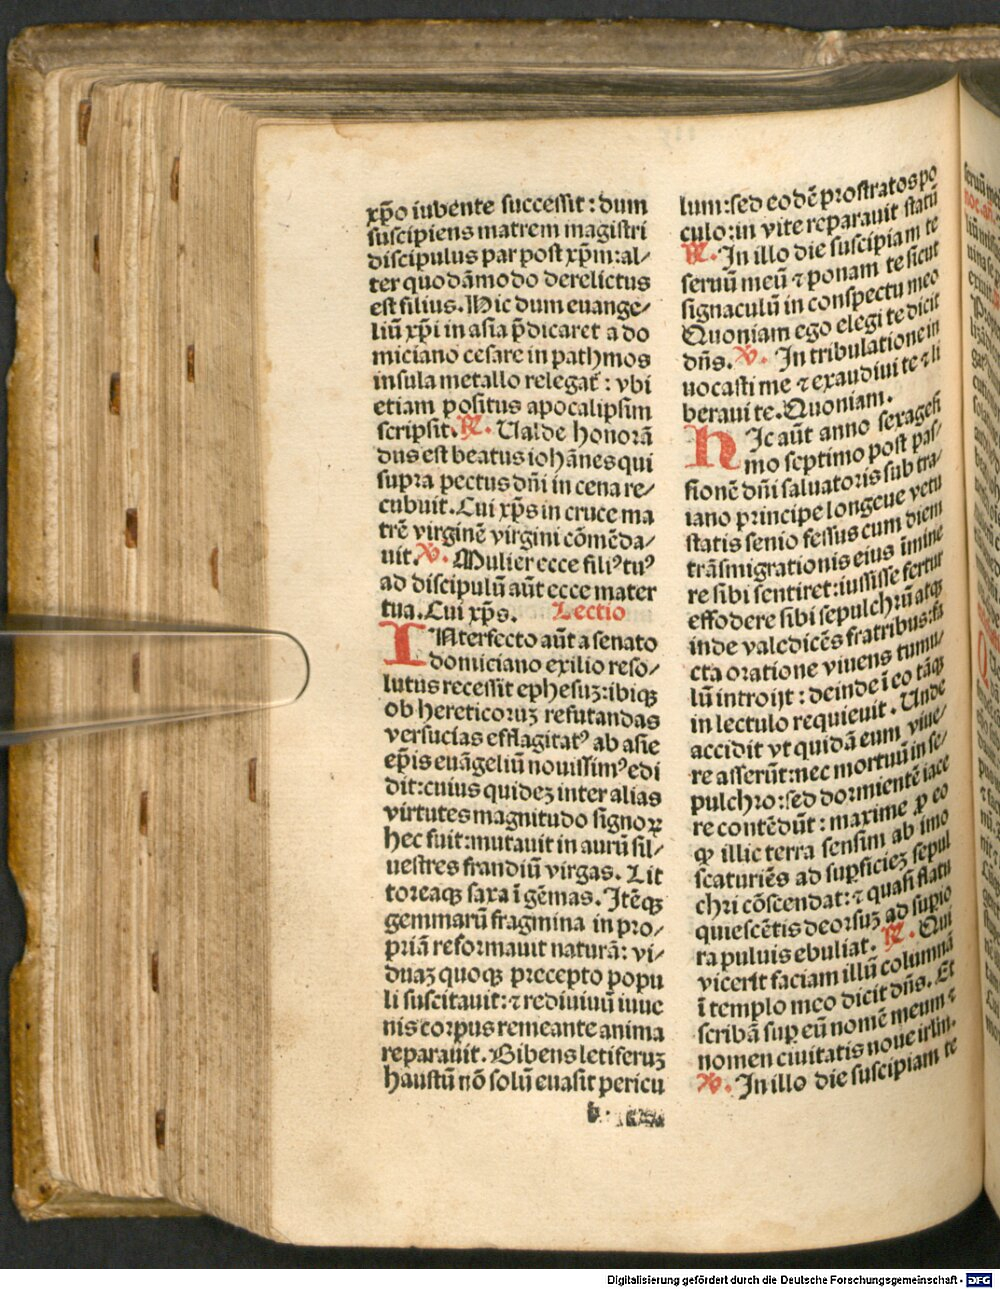 xp̄o iubente successit : dum
suscipiens matrem magistri
discipulus par post xp̄m:al⸗
ter quodāmodo derelictus
est filius. Hic dum euange⸗
liū xp̄i in asia p̄dicaret a do
miciano cesare in pathmos
insula metallo relegat᷑ : vbi
etiam positus apocalipsim
scripsit. ℟. Ualde honorā
dus est beatus iohānes qui
supra pectus dn̄i in cena re⸗
cubuit. Cui xp̄s in cruce ma
trē virginē virgini cōmēda⸗
uit. ℣. Mulier ecce filiꝰ tuꝰ
ad discipulū aūt ecce mater
tua. Cui xp̄s. Lectio
INterfecto aūt a senato
domiciano exilio reso⸗
lutus recessit ephesuꝫ:ibiqꝫ
ob hereticoruꝫ refutandas
versucias efflagitatꝰ ab asie
ep̄is euāgeliū nouissimꝰ edi
dit:cuius quideꝫ inter alias
virtutes magnitudo signoꝝ
hec fuit:mutauit in aurū sil⸗
uestres frandiū virgas. Lit
toreaqꝫ saxa ī gēmas. Itēqꝫ
gemmarū fragmina in pro⸗
priā reformauit naturā: vi⸗
duaꝫ quoqꝫ precepto popu
li suscitauit:⁊ rediuiuū iuue
nis corpus remeante anima
reparauit. Bibens letiferuꝫ
haustū nō solū euasit pericu
lum:sed eodē prostratos po
culo:in vite reparauit statū
℟. In illo die suscipiam te
seruū meū ⁊ ponam te sicut
signaculū in conspectu meo
Quoniam ego elegi te dicit
dn̄s. ℣. In tribulatione in
uocasti me ⁊ exaudiui te ⁊ li
beraui te. Quoniam.
HIc aūt anno sexagesi
mo septimo post pas⸗
sionē dn̄i saluatoris sub tra⸗
iano principe longeue vetu
statis senio fessus cum diem
trāsmigrationis eius īmine
re sibi sentiret:iussisse fertur
effodere sibi sepulchrū atqꝫ
inde valedicēs fratribus:fa
cta oratione viuens tumu⸗
lū introijt : deinde ī eo tāqꝫ
in lectulo requieuit. Unde
accidit vt quidā eum viue⸗
re asserūt:nec mortuū in se⸗
pulchro:sed dormientē iace
re contēdūt : maxime ꝓ eo
ꝙ illic terra sensim ab imo
scaturiēs ad suꝑficieꝫ sepul
chri cōscendat:⁊ quasi flatu
quiescētis deorsuꝫ ad supio
ra puluis ebuliat. ℟. Qui
vicerit faciam illū columnā
ī templo meo dicit dn̄s. Et
scribā suꝑ eū nomē meum ⁊
nomen ciuitatis noue irlm̄.
℣. In illo die suscipiam te
Digitalisierung gefördert durch die Deutsche Forschungsgemeinschaft - DFG